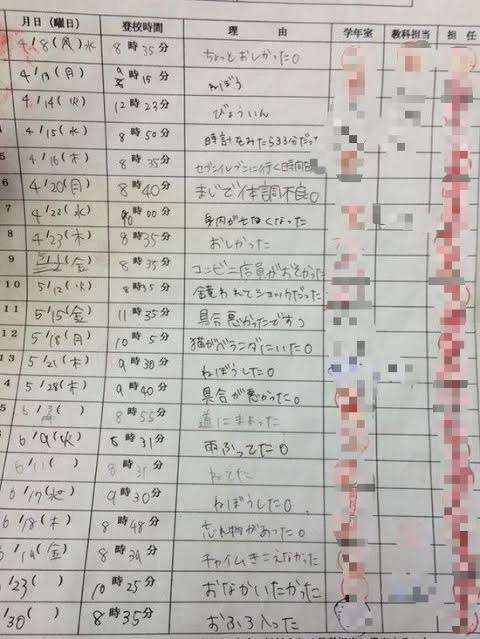 月日(曜日) 登校時間 理由 学年室 教科担当 担任
4/8(水) 8時35分 ちょっとおしかった。
4/13(月) 9時15分 ねぼう
4/14(火) 12時23分 びょういん
4/15(水) 8時50分 時計をみたら33分だった
5 4/16(木) 8時35分 セブンイレブンに行く時間
6 4/20(月) 8時40分 まじで体調不良。
7 4/22(水) 時00分 身内がそなくなった
8 4/23(木) 8時35分 おしかった
9 (金) 8時35分 コンビニ店員がおそかった
10 5/12(火) 8時35分 鏡われてショックだった
11 5/15(金) 11時35分 具合悪かったです。
12 5/18(月) 10時5分 猫がベランダにいた。
13 5/21(木) 9時30分 ねぼうした。
4 5/28(木) 9時40分 具合が悪かった。
5 6/ 8時55分 道にまよった
6/9(火) 8時31分 雨ふってた。
6/11( ) 8時31分 ねてた
6/17(水) 9時30分 ねぼうした。
6/18(木) 8時48分 忘れ物があった。
6/19(金) 8時39分 チャイムきこえなかった
/23( ) 10時25分 おなかいたかった
/30( ) 8時35分 おふろ入った